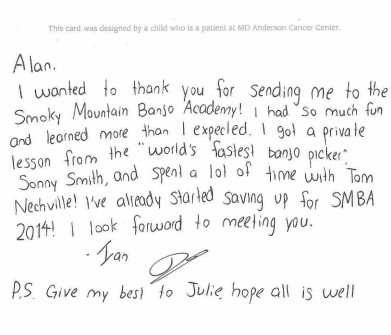 This card was designed by a child who is a patient at MD Anderson Cancer Center.
Alan.
I wanted to thank you for sending me to the
Smoky Mountain Banjo Academy! I had so much fun
and learned more than I expected. I got a private
lesson from the "world's fastest banjo picker",
Sonny Smith, and spent a lot of time with Tom
Nechville! I've already started saving up for SMBA
2014! I look forward to meeting you.
- Ivan
P.S. Give my best to Julie, hope all is well